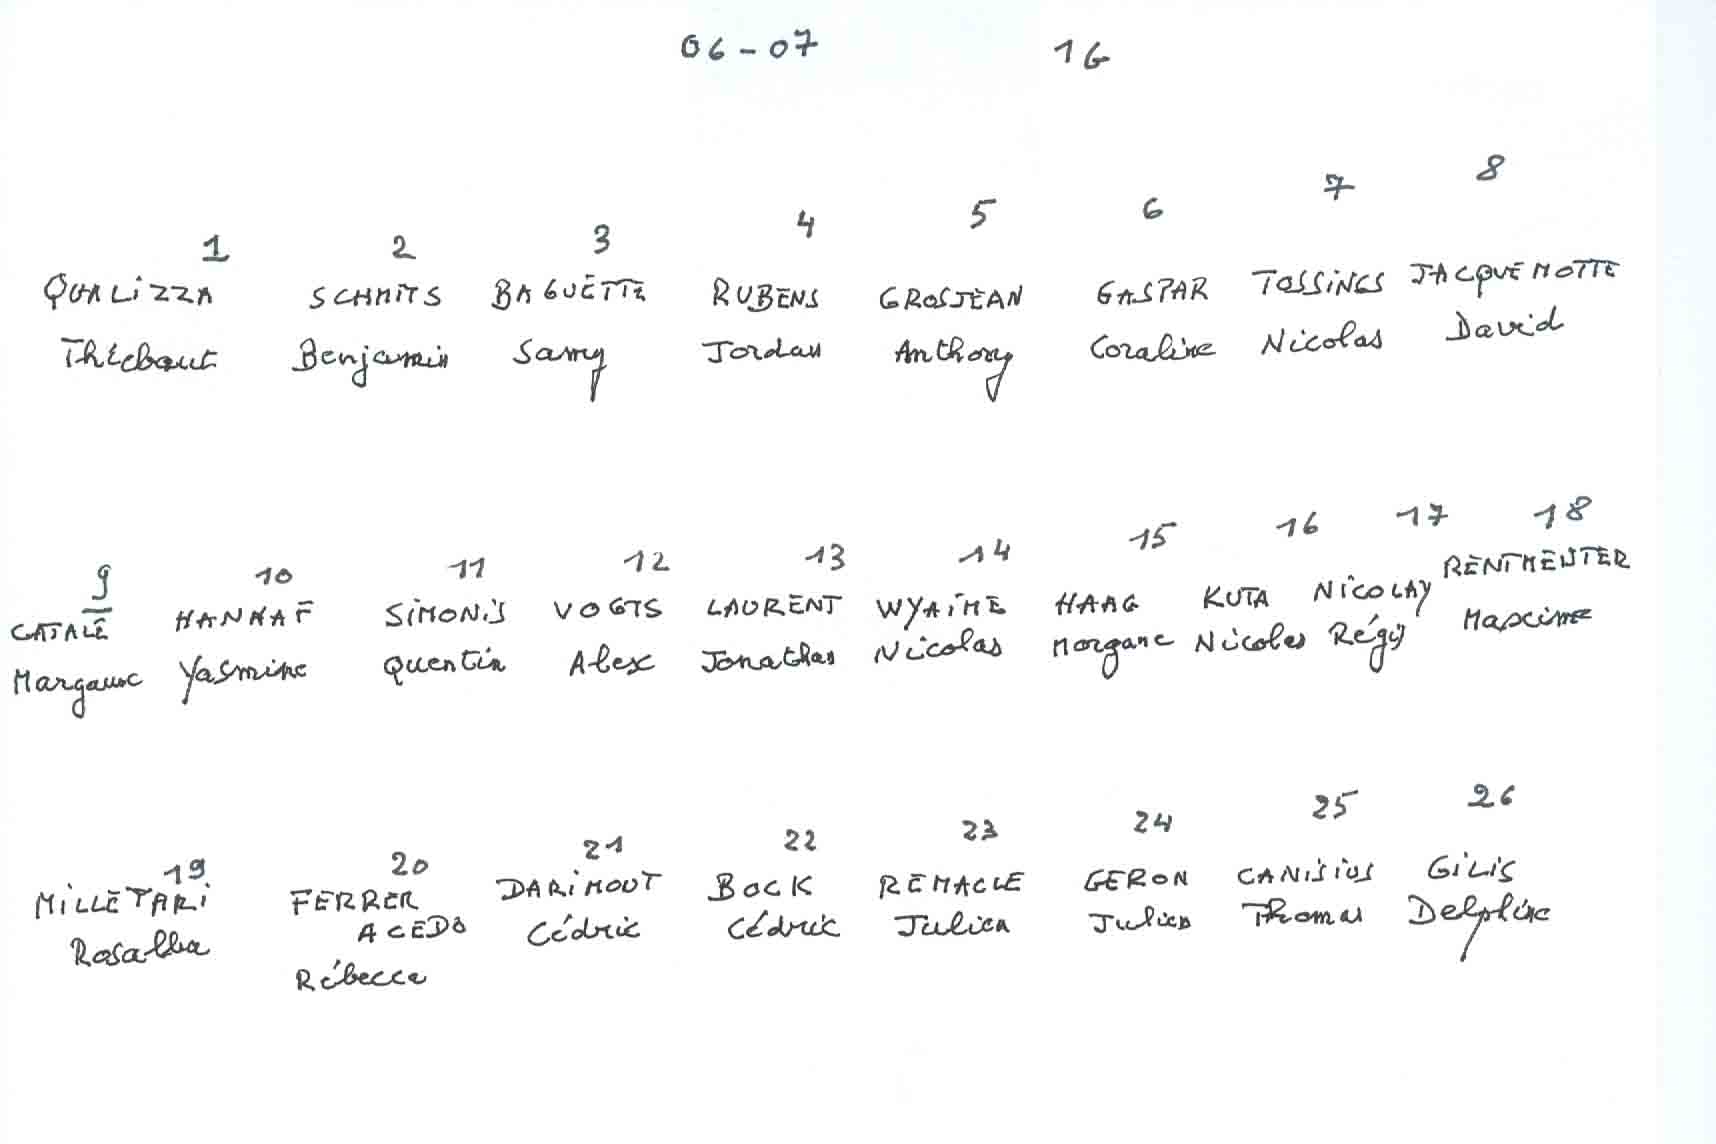 06-07 1G
1 2 3 4 5 6 7 8
QUALIZZA SCHMITS BAGUETTE RUBENS GROSJEAN GASPAR TOSSINGS JACQUEMOTTE
Thiebaut Benjamin Samy Jordan Anthony Coraline Nicolas David
9 10 11 12 13 14 15 16 17 18
CATALE HANNAF SIMONIS VOGTS LAURENT WYAIME HAAG KUTA NICOLAY RENTMEISTER
Margaux Yasmine Quentin Alex Jonathan Nicolas Morgane Nicolas Régis Maxime
19 20 21 22 23 24 25 26
MILLETARI FERRER DARIMONT BOCK REMACLE GERON CANISIUS GILIS
ACEDO
Rosalba Rébecca Cédric Cédric Julien Julien Thomas Delphine